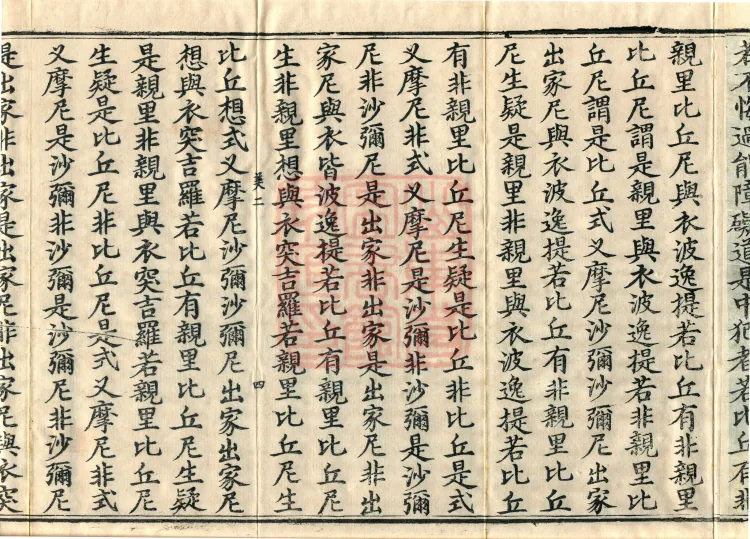 若不悔過能障礙道是中犯者若比丘有非
親里比丘尼與衣波逸提若比丘有非親里
比丘尼謂是親里與衣波逸提若非親里比
丘尼謂是比丘式叉摩尼沙彌沙彌尼出家
出家尼與衣波逸提若比丘有非親里比丘
尼生疑是親里非親里與衣波逸提若比丘
有非親里比丘尼生疑是比丘非比丘是式
叉摩尼非式叉摩尼是沙彌非沙彌是沙彌
尼非沙彌尼是出家非出家是出家尼非出
家尼與衣皆波逸提若比丘有親里比丘尼
生非親里想與衣突吉羅若親里比丘尼生
美二 四
比丘想式叉摩尼沙彌沙彌尼出家出家尼
想與衣突吉羅若比丘有親里比丘尼生疑
是親里非親里與衣突吉羅若親里比丘尼
生疑是比丘尼非比丘尼是式叉摩尼非式
叉摩尼是沙彌非沙彌是沙彌尼非沙彌尼
是出家非出家是出家尼非出家尼與衣突